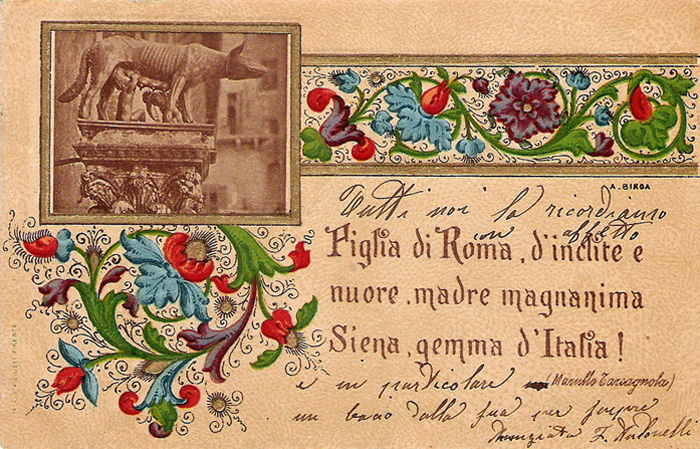 A. BIROA
Tutti noi la ricordiamo
con affetto
Figlia di Roma, d'inclite e
nuore, madre magnanima
Siena, gemma d'Italia!
e in particolare (Marullo Tarcagnota)
un bacio dalla sua per sempre
Annunziata Z. Antonelli